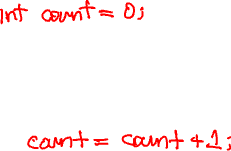 int count = 0;
count = count + 1;